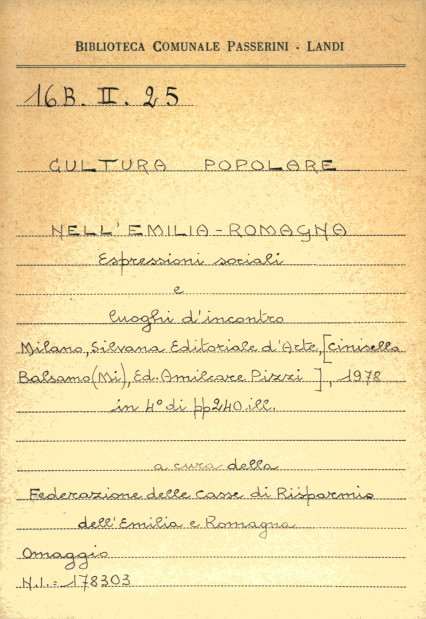 BIBLIOTECA COMUNALE PASSERINI - LANDI
16B. II. 25
CULTURA POPOLARE
NELL'EMILIA-ROMAGNA
Espressioni sociali
e
luoghi d'incontro
Milano, Silvana Editoriale d'Arte, [Cinisello
Balsamo (Mi), Ed. Amilcare Pizzi], 1978
in 4° di pp240.ill.
a cura della
Federazione delle Casse di Risparmio
dell'Emilia e Romagna
Omaggio
N.I.= 178303